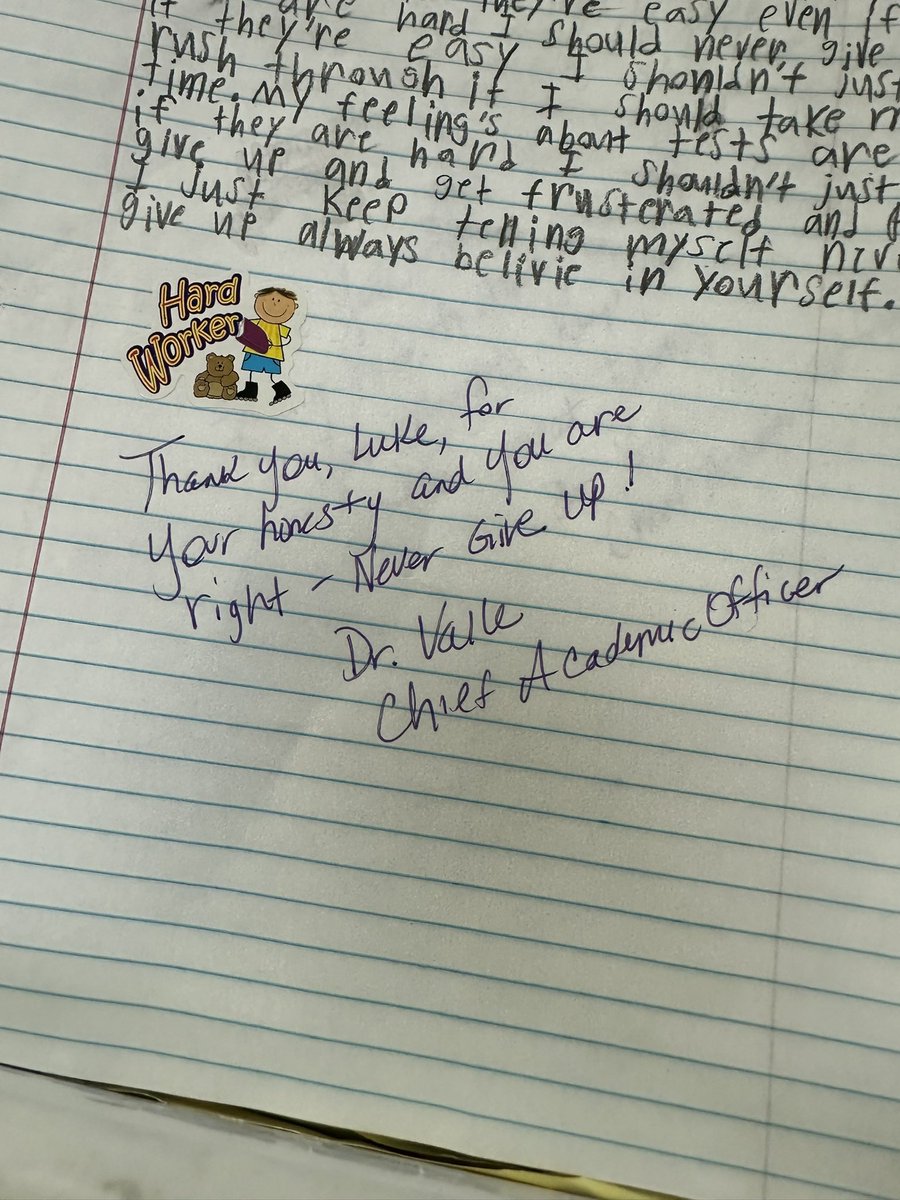 are hard they're easy even if
they're easy I should never give
rush through it I shouldn't just
time. My feeling's I should take m
if they are about tests are
give up and hard I shouldn't just
I just keep get frusterated and
give up always telling myself
belivie in yourself.
Hard
Worker
Thank you, Luke, for
your honesty and you are
right - Never Give up!
Dr. Valle
Chief Academic Officer